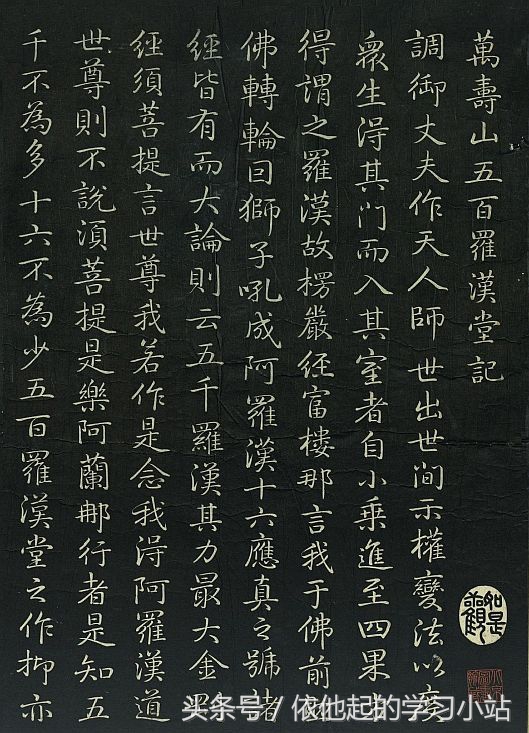 萬壽山五百羅漢堂記
調御丈夫作天人師世出世間示權變法以度
衆生得其門而入其室者自小乗進至四果方
得謂之羅漢故楞嚴經富樓那言我于佛前
佛轉輪曰獅子吼成阿羅漢十六應真之號諸
經皆有而大論則云五千羅漢其力最大金
經須菩提言世尊我若作是念我得阿羅漢道
世尊則不說須菩提是樂阿蘭那行者是知五
千不為多十六不為少五百羅漢堂之作抑亦
如是觀
头条号 / 依他起的学习小站